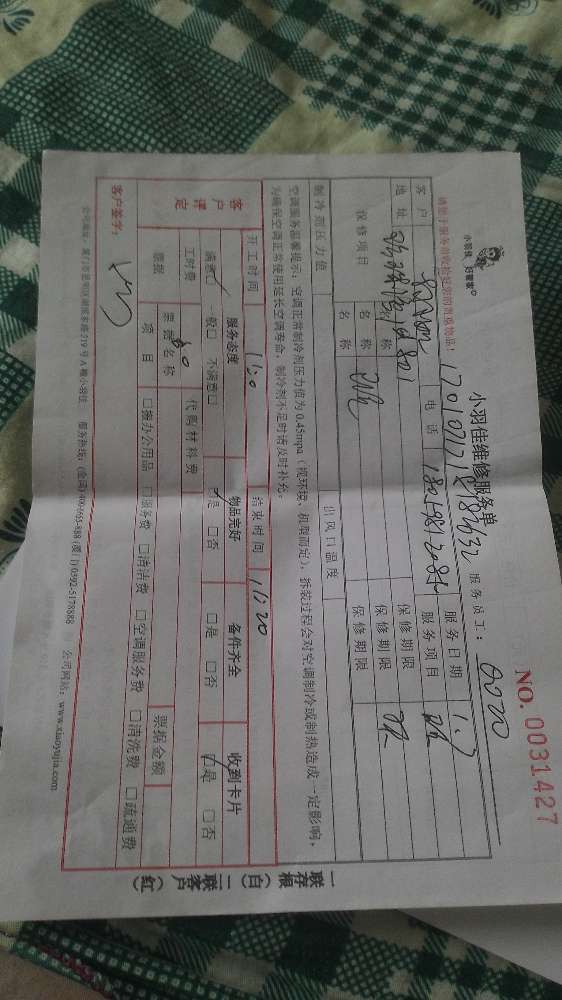 小羽佳 好管家
小羽佳维修服务单
NO. 0031427
请您于服务前收检贵您的贵重物品!
服务员工: 0020
客户 电话 服务日期 1.7
地址 服务项目
保修项目 名称 保修期限
名称 保修期限
制冷剂压力值 出风口温度
空调服务温馨提示:空调正常制冷剂压力值为0.45mpa(视环境、机型而定),拆装过程会对空调制冷或制热造成一定影响,
为确保空调正常使用延长空调寿命,制冷剂不足时请及时补充。
开工时间 11:0 结束时间 11:20
客户评定 服务态度 物品完好 备件齐全 收到卡片
满意□ 一般□ 不满意□ □是 □否 □是 □否 □是 □否
工时费 60 代购材料费
票据 票据名称 票据金额
项目 □搬办公用品 □服务费 □清洁费 □空调服务费 □清洗费 □疏通费
客户签字:
公司地址:厦门市思明区湖滨东路319号A幢小羽佳 服务热线:(全国)400-1665-888 (厦门) 0592-5178888 公司网站:www.xiaoyujia.com
一联存根(白) 二联客户(红)